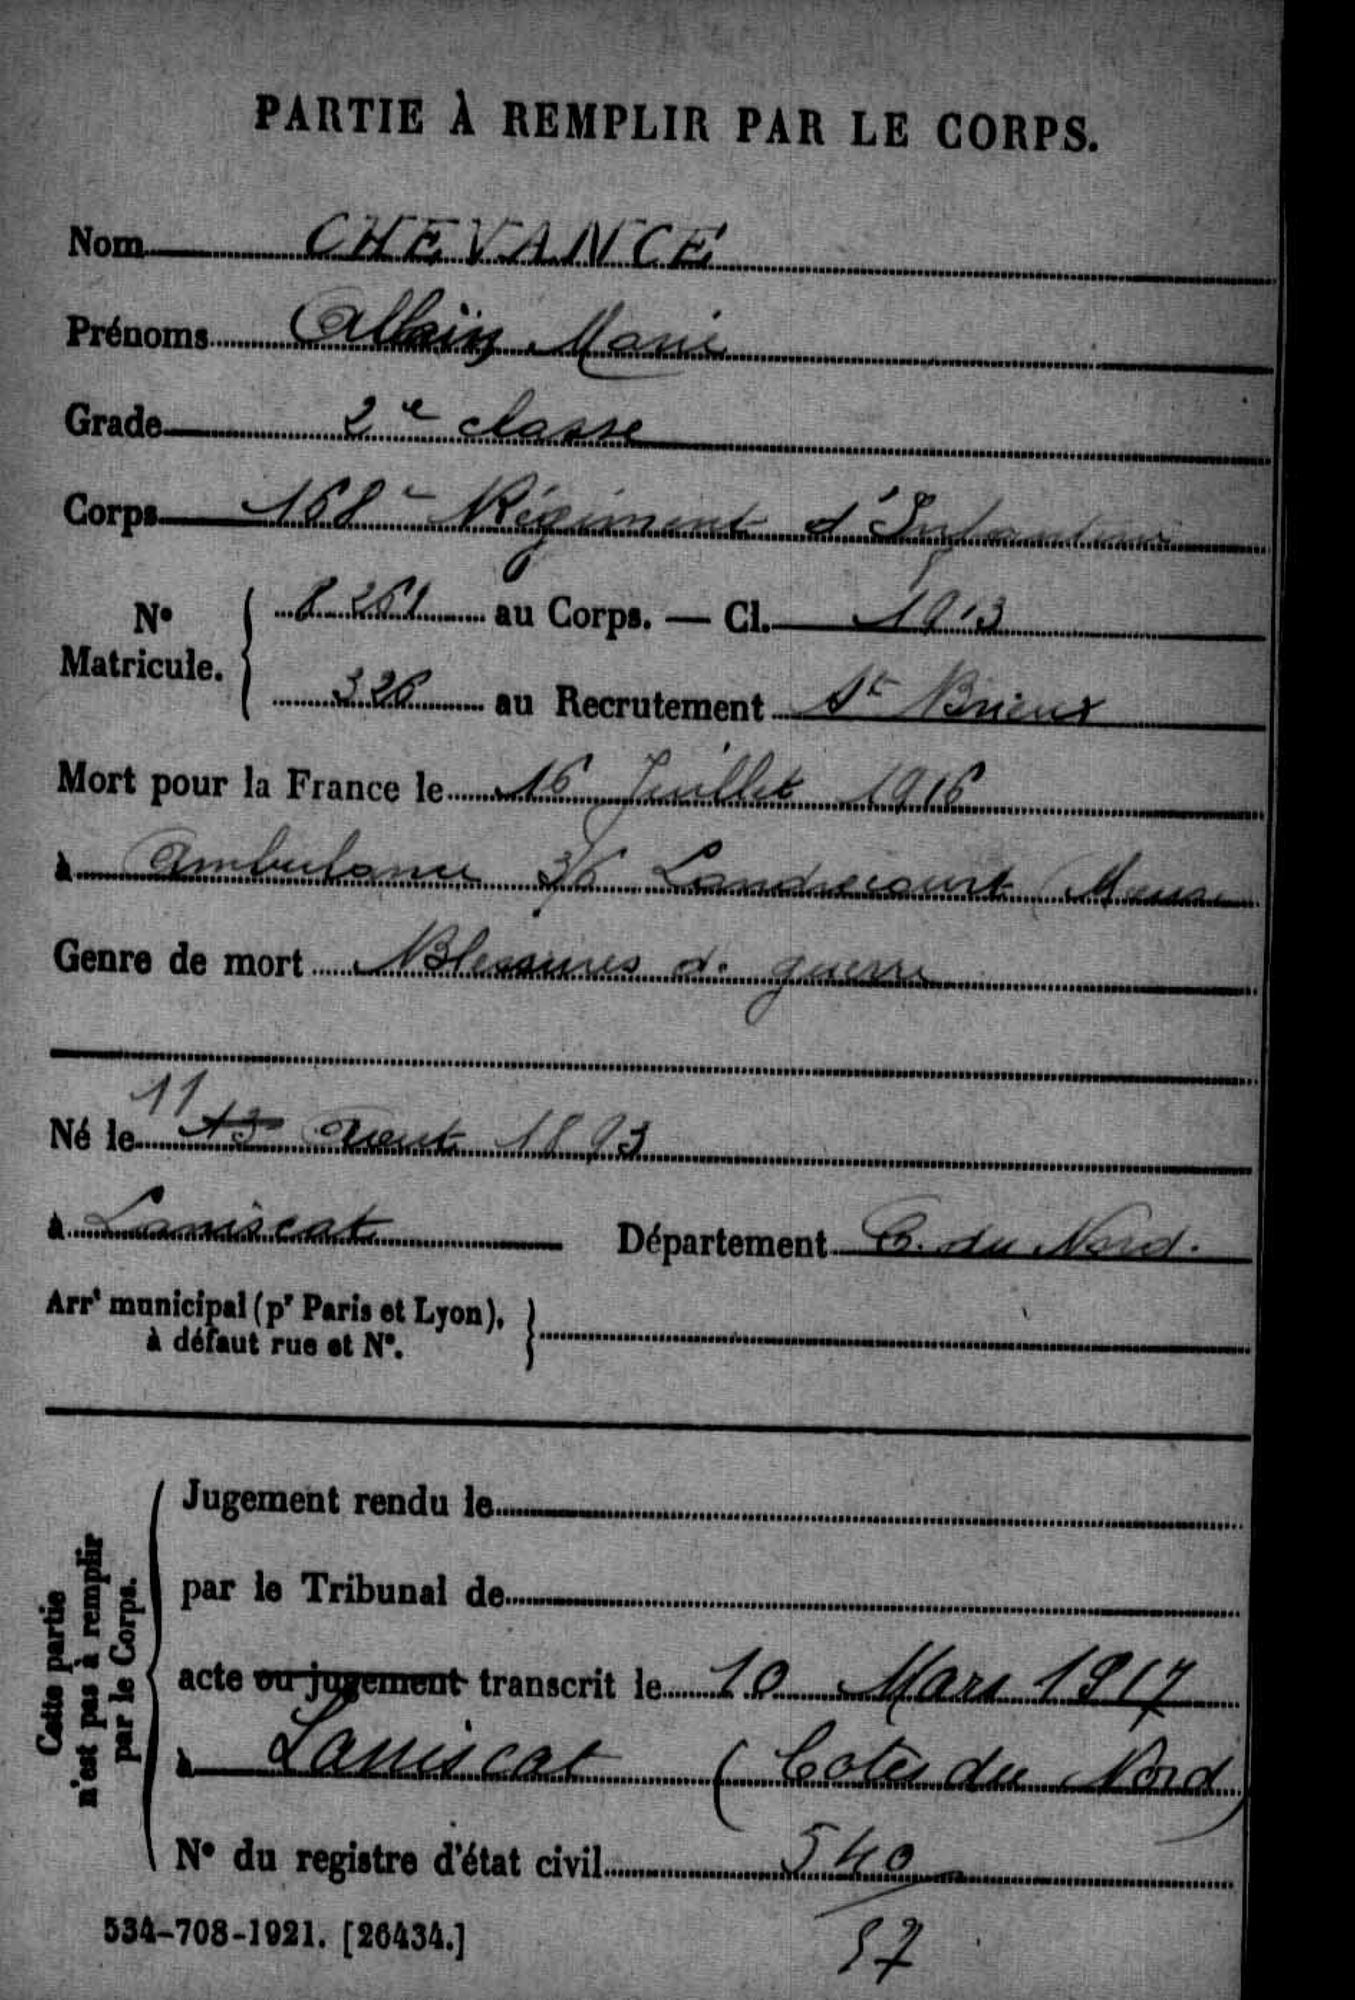 PARTIE À REMPLIR PAR LE CORPS.
Nom CHEVANCE
Prénoms Allain Marie
Grade 2e classe
Corps 168e Régiment d'Infanterie
No Matricule. { 8261 au Corps. — Cl. 1913
326 au Recrutement St Brieux
Mort pour la France le 16 Juillet 1916
à Ambulance 3/6 Landrecourt (Meuse
Genre de mort Blessures de guerre
11
Né le 13 Aout 1893
à Laniscat Département C. du Nord.
Arrt municipal (pr Paris et Lyon), à défaut rue et No. }
Cette partie n'est pas à remplir par le Corps.
Jugement rendu le
par le Tribunal de
acte ou jugement transcrit le 10 Mars 1917
à Laniscat (Cotes du Nord)
No du registre d'état civil 540/57
534-708-1921. [26434.]